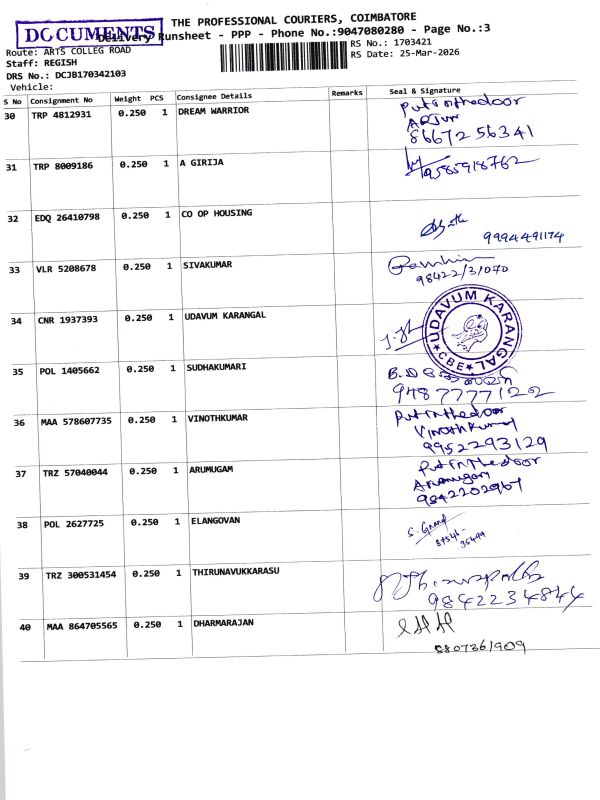 DOCUMENTS
THE PROFESSIONAL COURIERS, COIMBATORE
Delivery Runsheet - PPP - Phone No.:9047080280 - Page No.:3
Route: ARTS COLLEG ROAD
RS No.: 1703421
Staff: REGISH
RS Date: 25-Mar-2026
DRS No.: DCJB170342103
Vehicle:
S No Consignment No Weight PCS Consignee Details Remarks Seal & Signature
30 TRP 4812931 0.250 1 DREAM WARRIOR
Put in the door
Arjun
86672 56341
31 TRP 8009186 0.250 1 A GIRIJA
9585918762
32 EDQ 26410798 0.250 1 CO OP HOUSING
9994491174
33 VLR 5208678 0.250 1 SIVAKUMAR
98422/31070
34 CNR 1937393 0.250 1 UDAVUM KARANGAL
UDAVUM KARANGAL
CBE
35 POL 1405662 0.250 1 SUDHAKUMARI
9487777122
36 MAA 578607735 0.250 1 VINOTHKUMAR
Put in the door
Vinothkumar
9952293129
37 TRZ 57040044 0.250 1 ARUMUGAM
Put in the door
Arumugam
9842202967
38 POL 2627725 0.250 1 ELANGOVAN
39 TRZ 300531454 0.250 1 THIRUNAVUKKARASU
9842234844
40 MAA 864705565 0.250 1 DHARMARAJAN